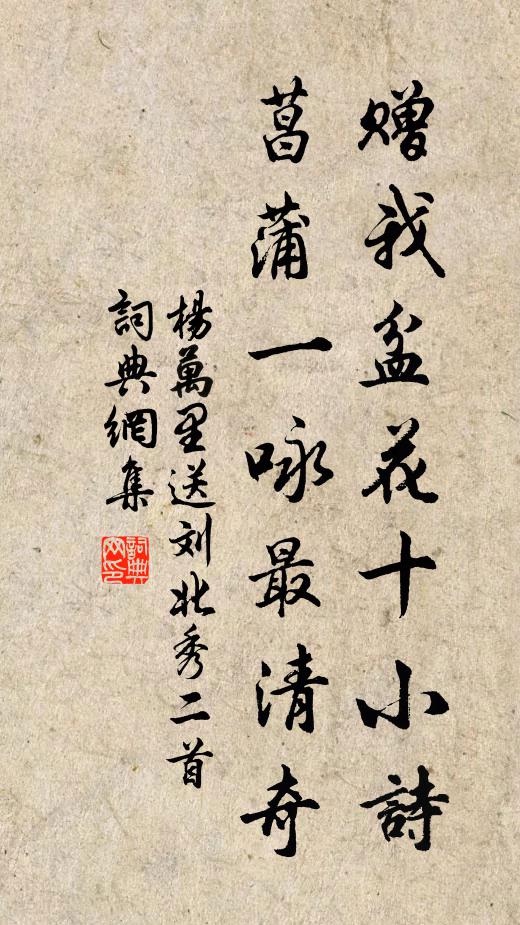 赠我盆花十小詩
菖蒲一咏最清奇
楊萬里送刘北秀二首
詞典網集
詞典网印